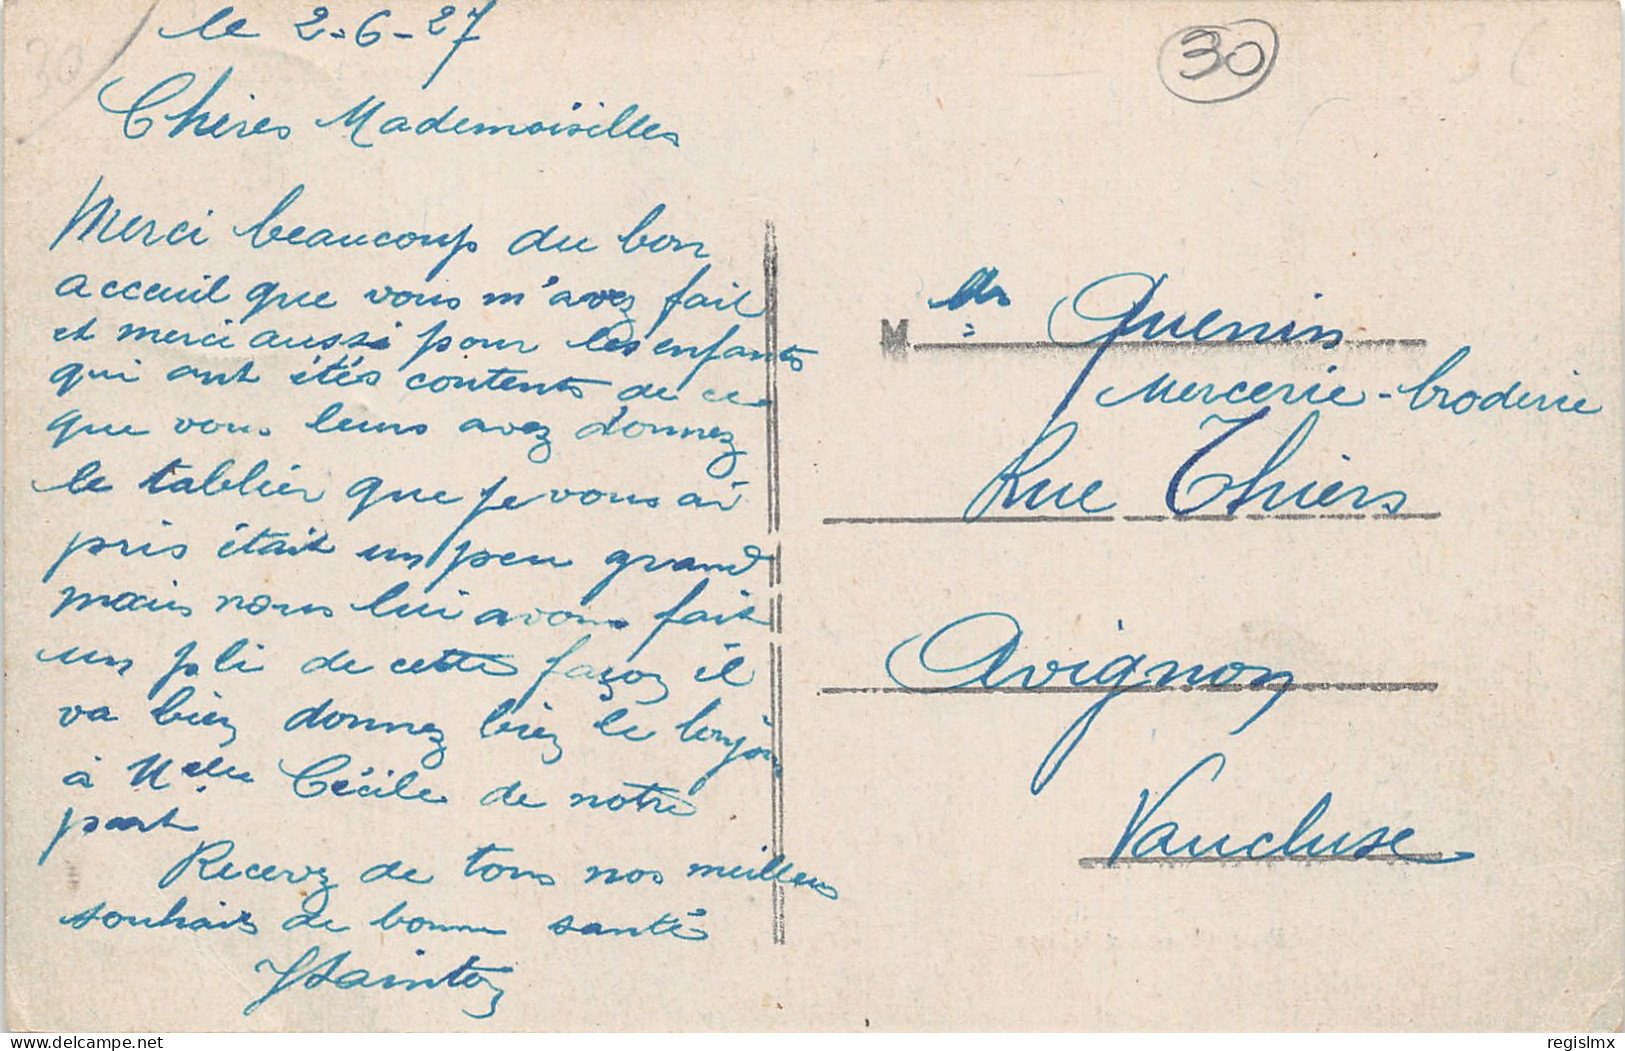 le 2-6-27
30
30
Chères Mademoiselles
Merci beaucoup du bon
acceuil que vous m'avez fait
et merci aussi pour les enfants
qui ont étés contents de ce
que vous leurs avez donnez
le tablier que je vous ai
pris était un peu grand
mais nous lui avons fait
un pli de cette façon il
va bien donnez bien le bonjour
à Melle Cécile de notre
part
Recevez de tous nos meilleurs
souhaits de bonne santé
M elles Quenin
Mercerie-broderie
Rue Thiers
Avignon
Vaucluse
delcampe.net
regislmx